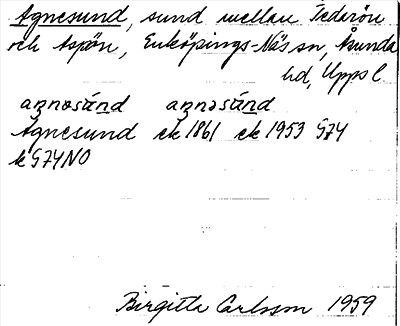 Agnesund, sund mellan Tedarön
och Aspön, Enköpings-Näs sn, Åsunda
hd, Upps l.
aŋnəsúnd aŋnəsúnd
Agnesund ek 1861 ek 1953 G74
k G74NO
Birgitta Carlsson 1959